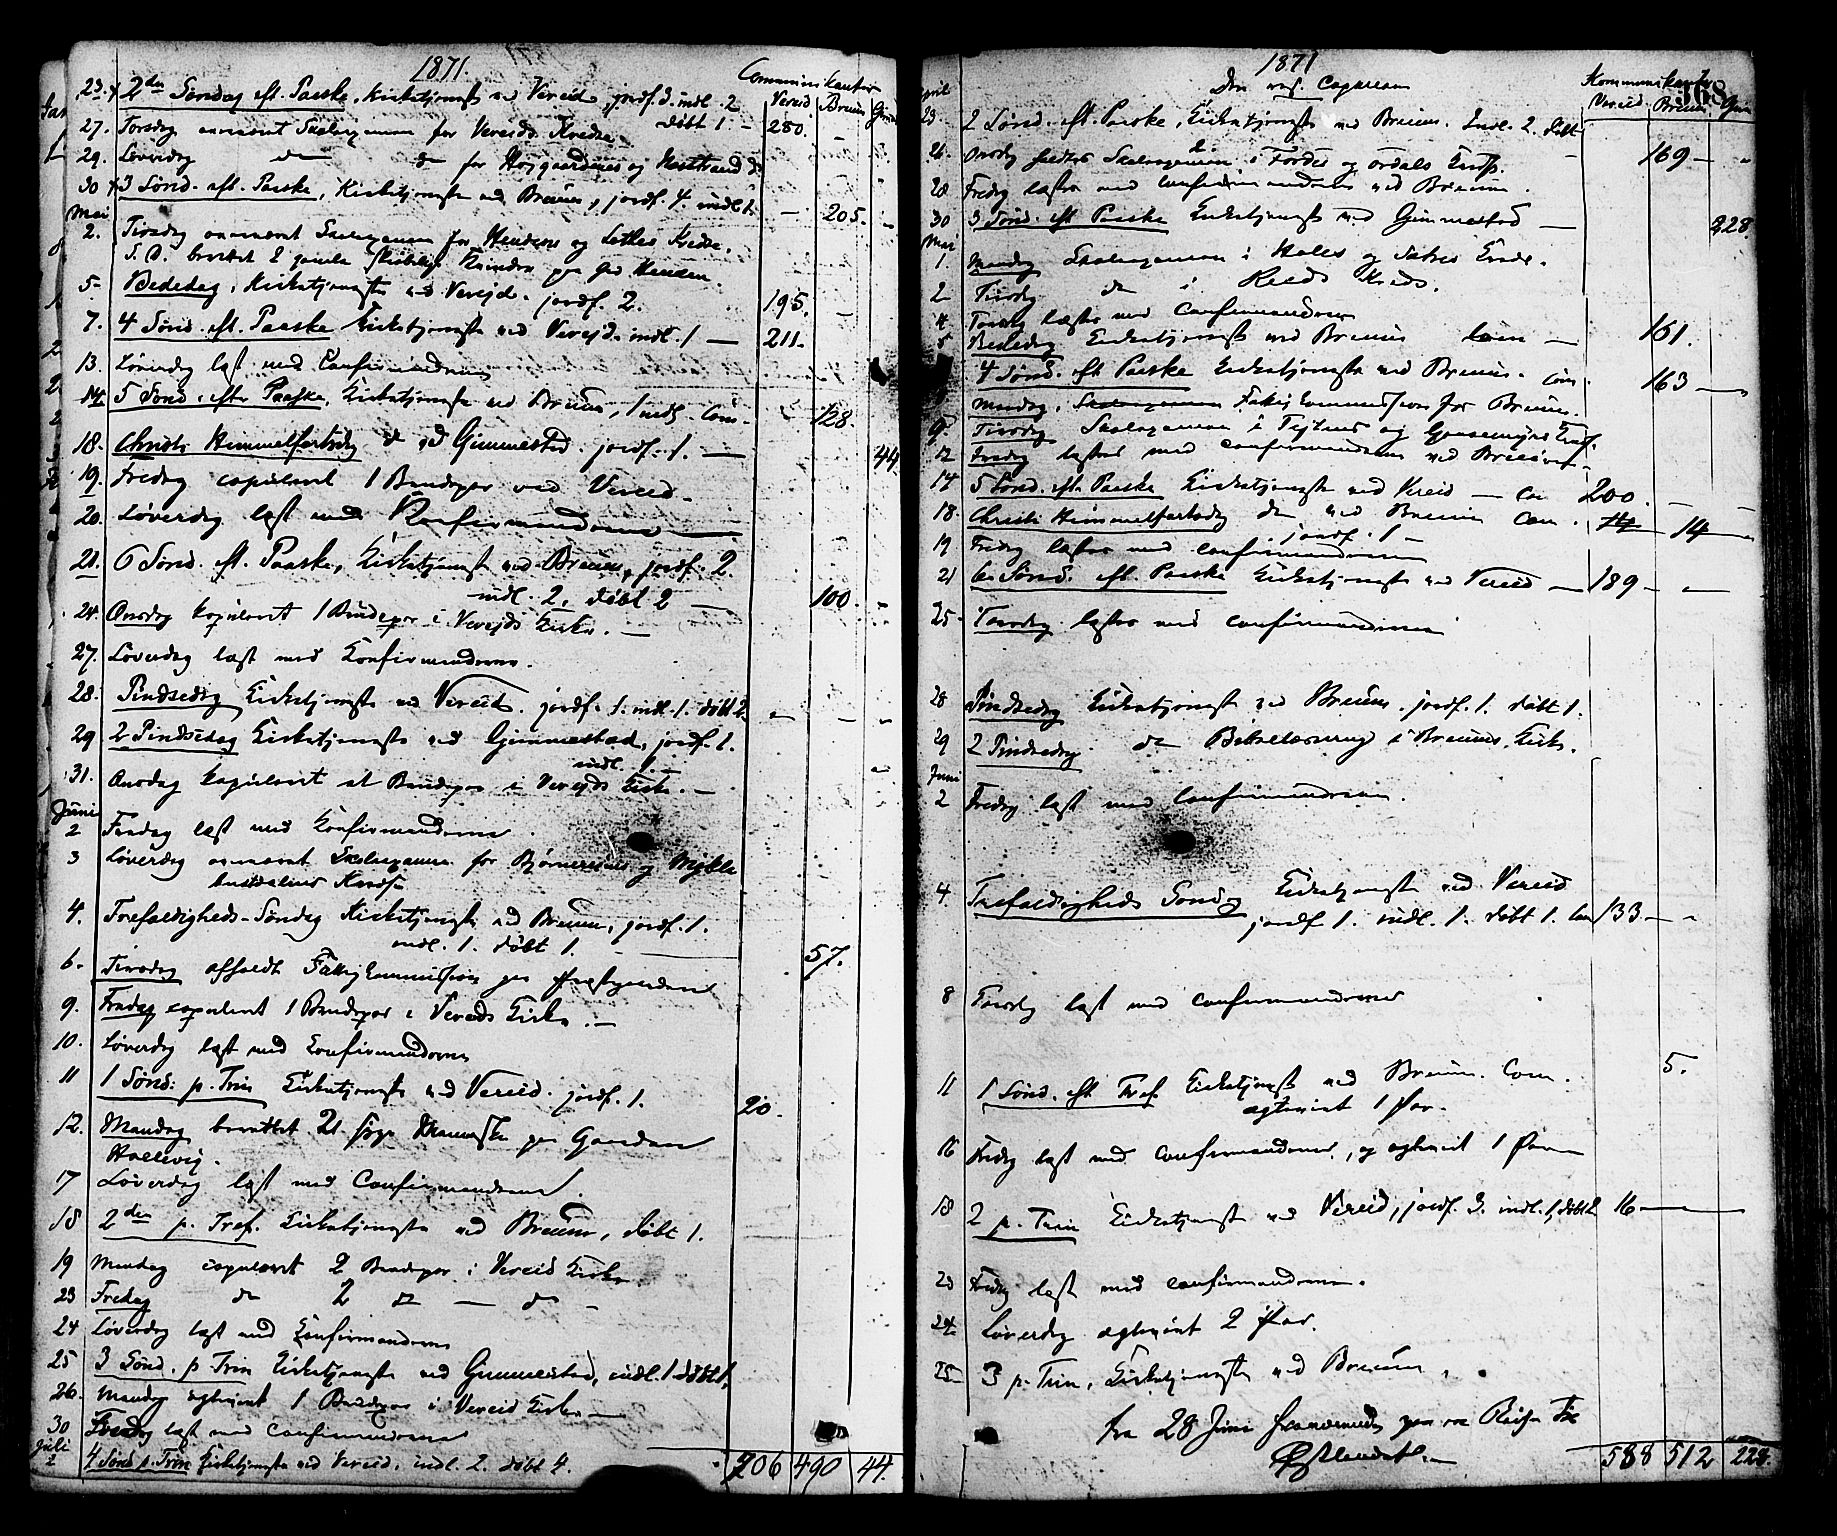 1871.
Communikanter
Vereid Breum Gim
23. 2den Søndag eft. Paaske, Kirketjeneste ved Vereid jordf. 3. indl. 2
døbt 1. - 280. -
27. Torsdag overværet Skoleexamen for Vereids Kreds.
29. Løverdag do do for
30 3 Sønd. eft. Paaske, Kirketjeneste ved Breum, jordf. 4 indl. 1. - 205. -
Mai
2. Tirsdag overværet Skoleexamen for Hendens og Lothes Kredse.
S. D. berettet 2 gamle Kvinder paa Gd Henden.
5. Bededag, Kirketjeneste ved Vereid. jordf. 2. 195. -
7. 4 Sønd. eft. Paaske Kirketjeneste ved Vereid. indl. 1 — 211.
13. Løverdag læst med Confirmanderne
14 5 Sønd. efter Paaske, Kirketjeneste ved Breum, 1 indl. Com. 128.
18. Christi Himmelfartsdag do ved Gimmestad. jordf. 1. — 44
19. Fredag copuleret 1 Brudepar ved Vereid.
20. Løverdag læst med Konfirmanderne
21. 6 Sønd. eft. Paaske, Kirketjeneste ved Breum, jordf. 2.
indl. 2, døbt 2 — 100. -
24. Onsdag kopuleret 1 Brudepar i Vereids Kirke. —
27. Løverdag læst med Konfirmanderne.
28. Pindsedag Kirketjeneste ved Vereid. jordf. 1. indl. 1. døbt 2. - - -
29 2 Pindsedag Kirketjeneste ved Gimmestad, jordf. 1.
indl. 1. -
31. Onsdag kopuleret et Brudepar i Vereids Kirke. —
Juni
2 Fredag læst med Konfirmanderne.
3 Løverdag overværet Skoleexamen for og Mykle
Kreds
4. Trefoldigheds-Søndag Kirketjeneste ved Breum, jordf. 1.
indl. 1. døbt 1. 57.
6. Tirsdag afholdt Fattigkommission paa Præstegaarden
9. Fredag copuleret 1 Brudepar i Vereids Kirke. —
10. Løverdag læst med Konfirmanderne
11 1 Sønd: p. Trin Kirketjeneste ved Vereid. jordf. 1. 20.
12. Mandag berettet 21 syge Menneske paa Gaarden
Hallevig.
17 Løverdag læst med Confirmanderne.
18 2den p. Tref. Kirketjeneste ved Breum, døbt 1.
19 Mandag copuleret 2 Brudepar i Vereid Kirke.
23 Fredag do 2 do — do -
24 Løverdag læst med Konfirmanderne
25 3 Sønd. p. Trin Kirketjeneste ved Gimmestad, indl. 1 døbt 1.
26. Mandag ægteviet 1 Brudepar i Vereid Kirke —
30 læst med Confirmanderne
Juli
2 4 Sønd p. Trin Kirketjeneste ved Vereid. indl. 2. døbt 4. 706 490 44.
1871
Den res. Capellan
Kommunikanter
368
Vereid Breum Gim
April
23. 2 Sønd. eft. Paaske, Kirketjeneste ved Breum. Indl. 2. døbt - 169 — -
26. Onsdag holdtes Skoleexamen i Fordes og Ordals Kreds.
28 Fredag læstes med Confirmanderne ved Breum.
30 3 Sønd. eft Paaske Kirketjeneste ved Gimmestad — 228.
Mai
1 Mandag Skoleexamen i Holes og Kreds.
2 Tirsdag do i Reeds Kreds.
4. Torsdag læstes med Confirmanderne
5 Bededag Kirketjeneste ved Breum Com — 161.
4 Sønd. eft. Paaske Kirketjeneste ved Breum. Com. 163 —
Mandag, Fattigkommission for Breum.
9. Tirsdag Skoleexamen i og Kreds.
12 Fredag læstes med Confirmanderne ved Breum
14 5 Sønd. eft. Paaske Kirketjeneste ved Vereid — Com 200. -
18 Christi Himmelfartsdag do ved Breum Com. 14 14 —
jordf. 1 -
19 Fredag læstes med Confirmanderne
21 6te Sønd. eft. Paaske Kirketjeneste ved Vereid — 189 — —
25 Torsdag læstes med Confirmanderne
28 Pindsedag Kirketjeneste ved Breum. jordf. 1. døbt 1.
29 2 Pindsedag do Bibellæsning i Breums Kirke.
Juni
2 Fredag læst med Confirmanderne.
4 Trefoldigheds Søndag Kirketjeneste ved Vereid
jordf 1. indl. 1. døbt 1. Com 133 — -
8 Torsdag læst med Confirmanderne
11 1 Sønd. eft Tref. Kirketjeneste ved Breum. Com. 5.
ægteviet 1 Par.
16 Fredag læst med Confirmanderne, og ægteviet 1 Par
18 2 p. Trin Kirketjeneste ved Vereid, jordf. 3. indl. 1, døbt 2 16 —
23 Fredag læst med Confirmanderne.
24 Løverdag ægteviet 2 Par.
25 3 p. Trin, Kirketjeneste ved Breum,
fra 28 Juni fraværende paa en Reise
588 512 228.